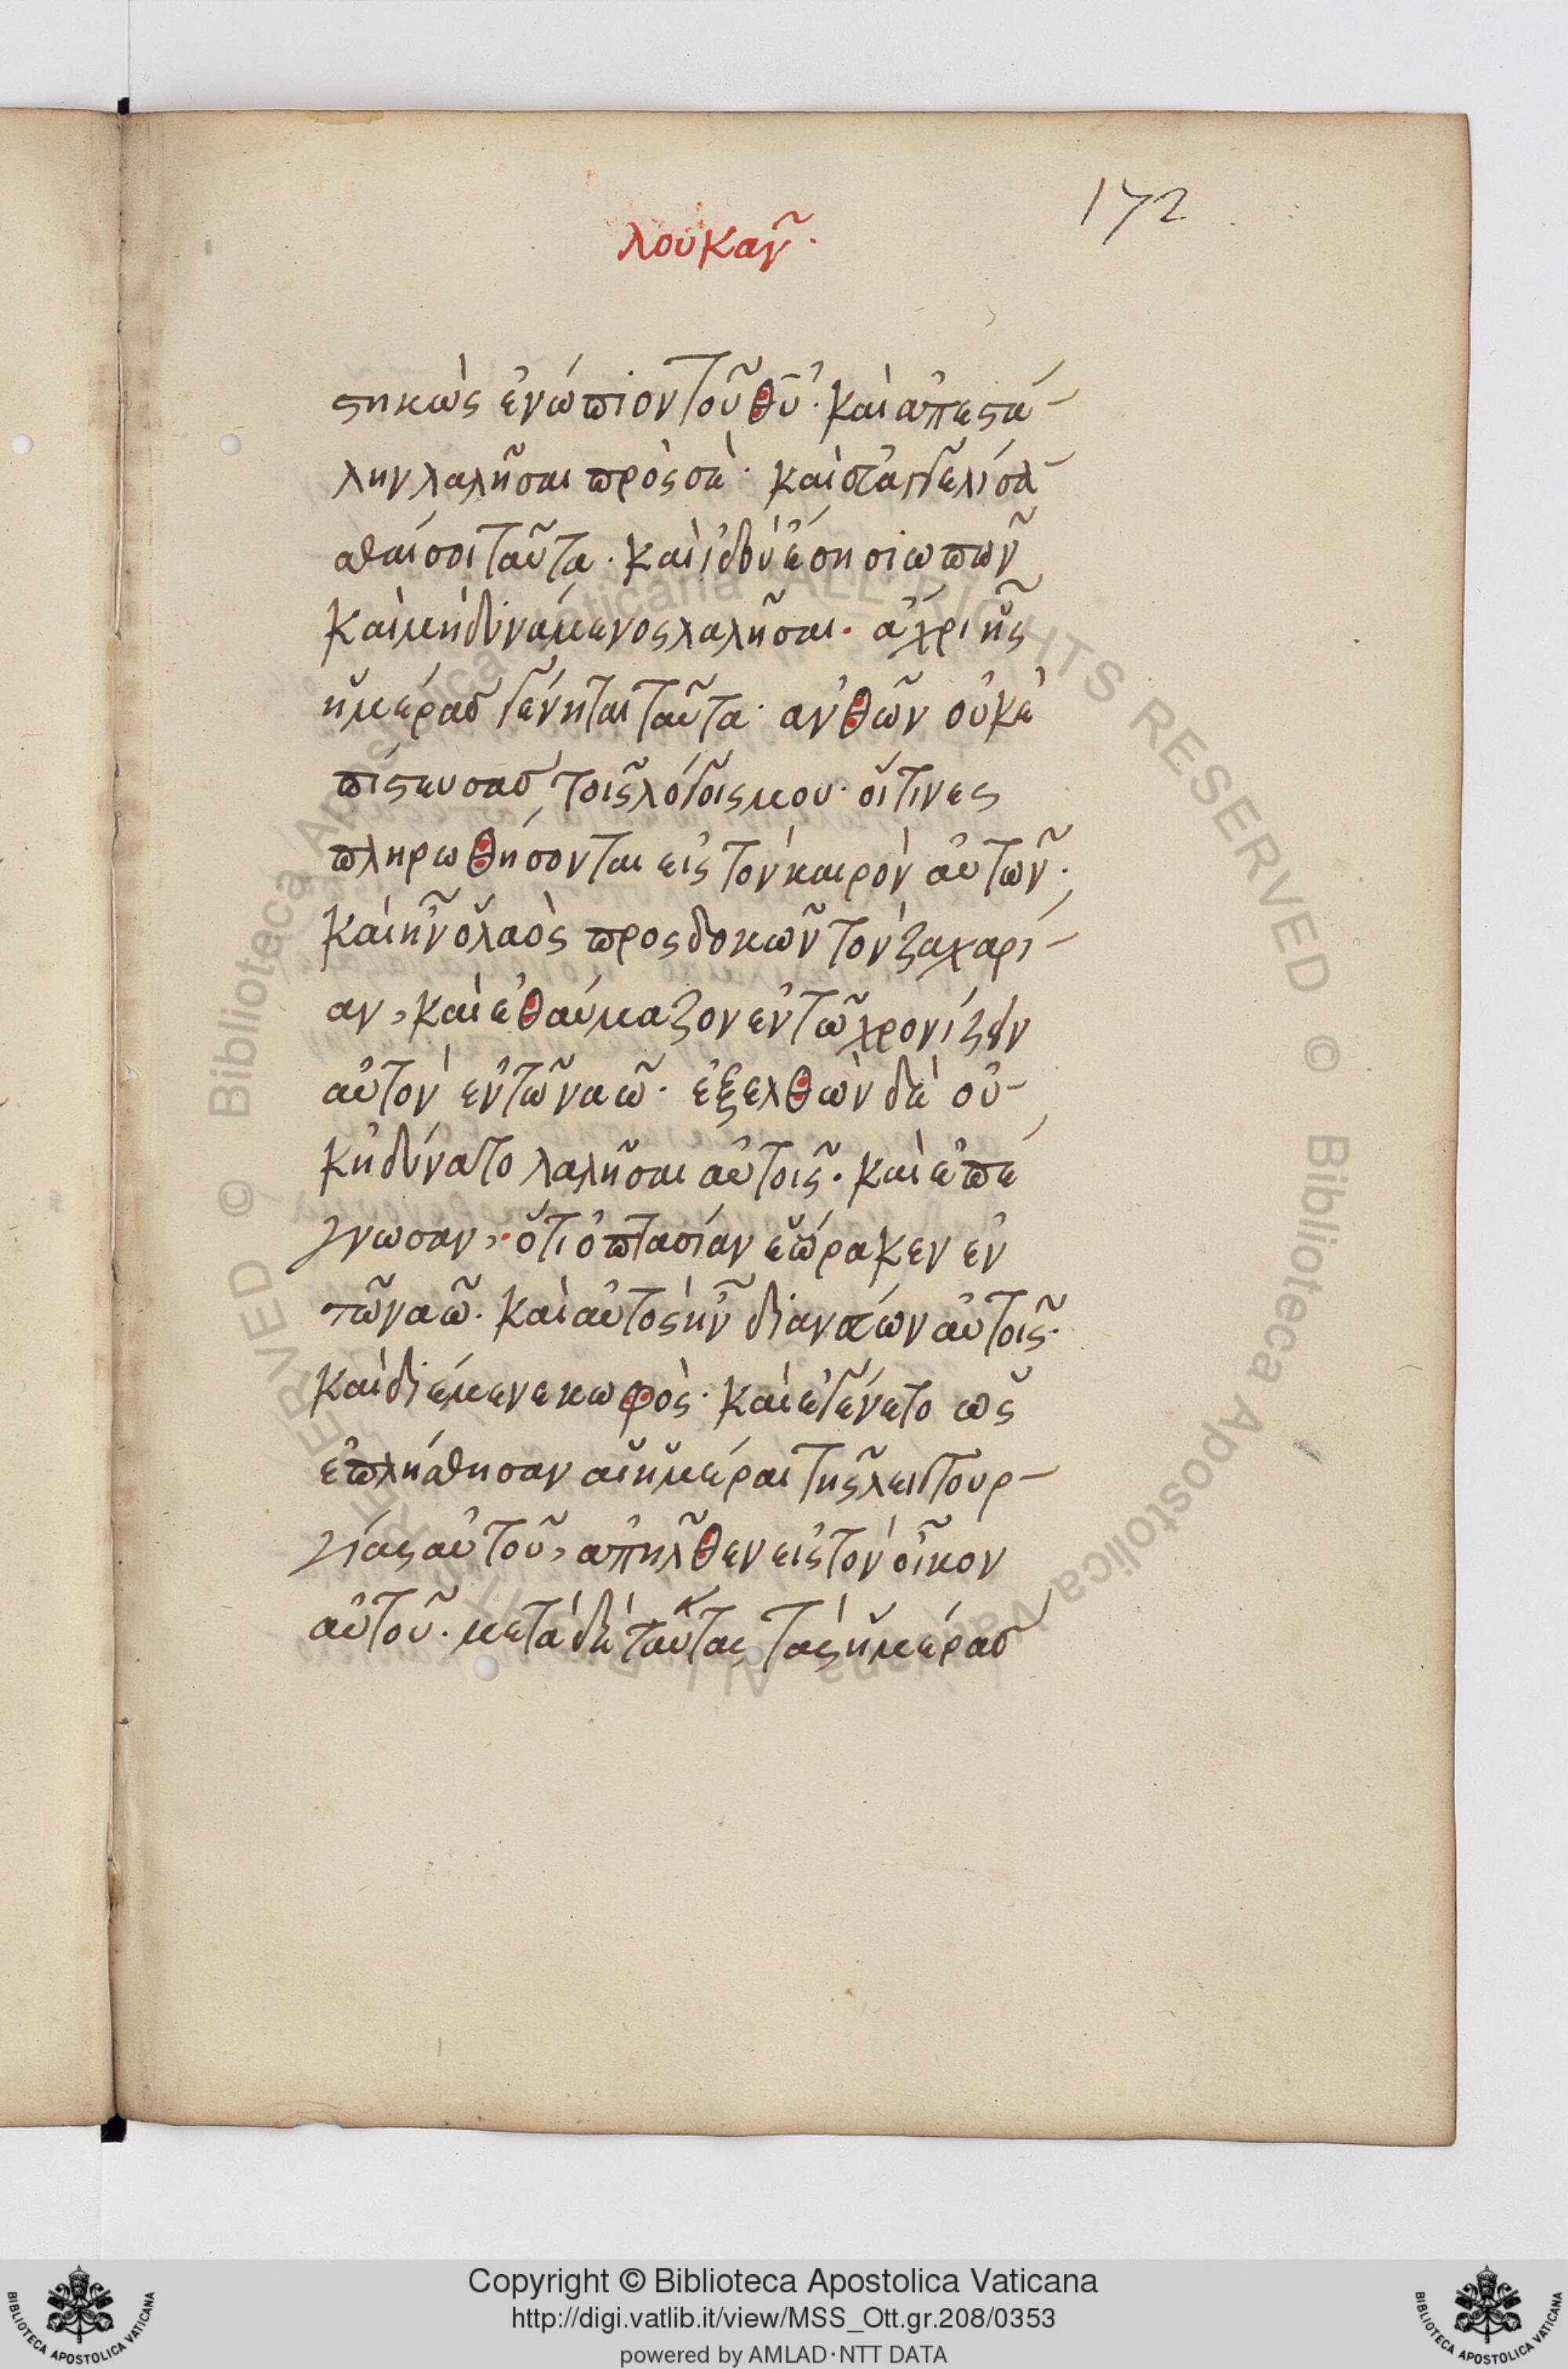 172
λουκαν῀.
στηκὼς ἐνώπιον τοῦ θῦ. καὶ ἀπεστά-
λην λαλῆσαι πρὸς σὲ. καὶ εὐαγγελίσα
σθαί σοι ταῦτα. καὶ ἰδοὺ ἔση σιωπῶν
καὶ μὴ δυνάμενος λαλῆσαι. ἄχρι ἧς
ἡμέρας γένηται ταῦτα. ἀνθῶν οὐκ ἐ
πίστευσας τοῖς λόγοις μου. οἵτινες
πληρωθήσονται εἰς τὸν καιρὸν αὐτῶν.
καὶ ἦν ὁ λαὸς προςδοκῶν τὸν ζαχαρί-
αν, καὶ ἐθαύμαζον ἐν τῶ χρονίζειν
αὐτὸν ἐν τῶ ναῶ. ἐξελθὼν δὲ οὐ-
κ ἠδύνατο λαλῆσαι αὐτοῖς. καὶ ἐπέ
γνωσαν, ὅτι ὀπτασίαν ἑώρακεν ἐν
τῶ ναῶ. καὶ αὐτὸς ἦν διανεύων αὐτοῖς.
καὶ διέμενε κωφὸς. καὶ ἐγένετο ὡς
ἐπλήσθησαν αἱ ἡμέραι τῆς λειτουρ-
γίας αὐτοῦ, ἀπῆλθεν εἰς τὸν οἶκον
αὐτοῦ. μετὰ δὲ ταύτας τὰς ἡμέρας
Copyright © Biblioteca Apostolica Vaticana
http://digi.vatlib.it/view/MSS_Ott.gr.208/0353
powered by AMLAD·NTT DATA